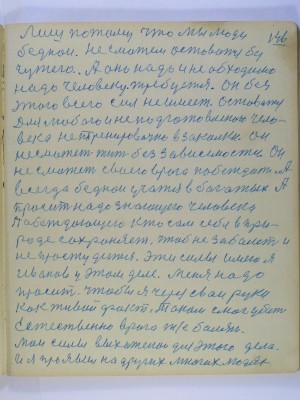 146
Лишу потому, что мы люди
бедном. Несможем оставатьбу
чужего. А оно надо и необходимо
надо человеку требуется. Он без
этого всего сил неимеет оставаты
Для любого и неподготовленого чело-
века нетренеровочно в закалки. Он
несможет жить без зависемости. Он
несможет своего врага побеждать. А
всегда бедном учатся в богатых. А
просить надо знающего человека
Побеждающего кто сам себя в при-
роде сохроняет, чтоб не заболеть и
непростудится. Эти силы имею я
Иванов у этом деле. Меня надо
просить. Чтобы я через свои руки
как живой факт, током смог убить
Естественно врага тже болезнь.
Мои силы выхоженои для этого дела.
И я проявил на других многих людях